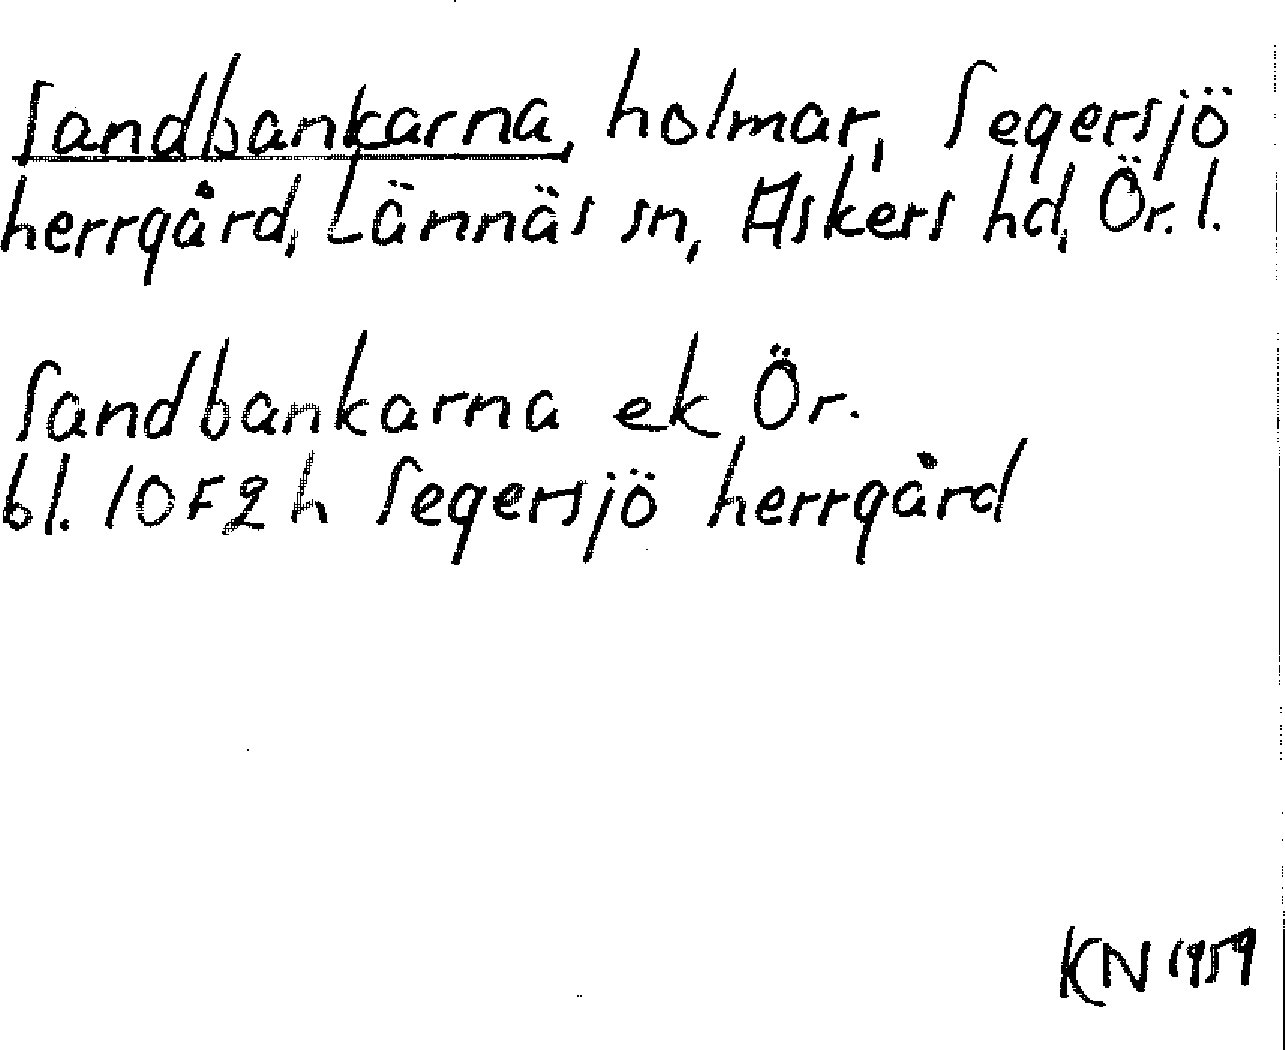 Sandbankarna, holmar, Segersjö
herrgård, Lännäs sn, Askers hd, Ör. l.
Sandbankarna ek Ör.
bl. 10F2h Segersjö herrgård
KN 1959